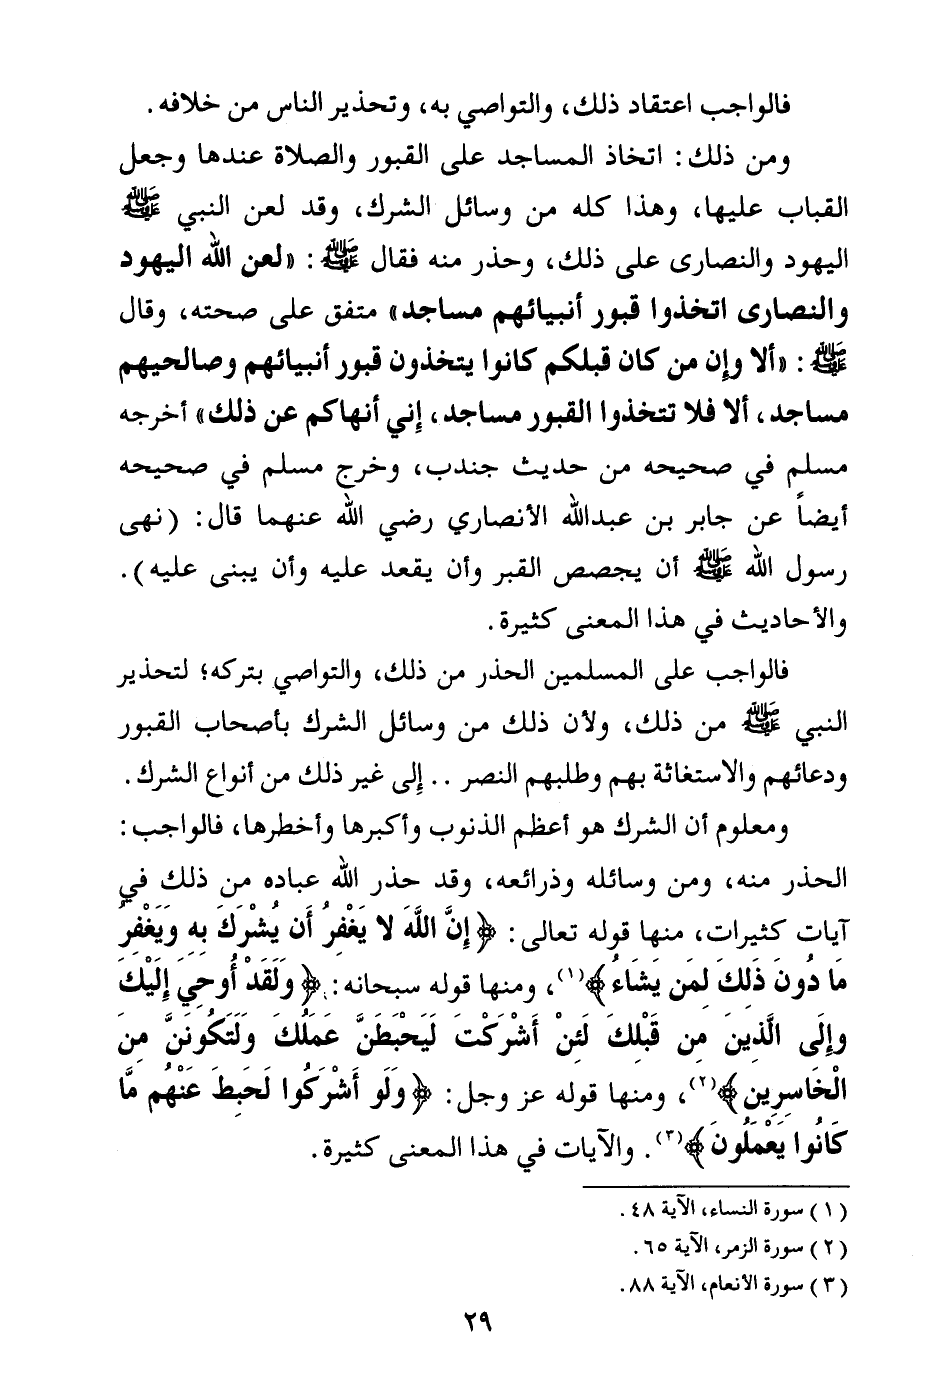 فالواجب اعتقاد ذلك، والتواصي به، وتحذير الناس من خلافه.
ومن ذلك: اتخاذ المساجد على القبور والصلاة عندها وجعل
القباب عليها، وهذا كله من وسائل الشرك، وقد لعن النبي ﷺ
اليهود والنصارى على ذلك، وحذر منه فقال ﷺ: «لعن الله اليهود
والنصارى اتخذوا قبور أنبيائهم مساجد» متفق على صحته، وقال
ﷺ: «ألا وإن من كان قبلكم كانوا يتخذون قبور أنبيائهم وصالحيهم
مساجد، ألا فلا تتخذوا القبور مساجد، إني أنهاكم عن ذلك» أخرجه
مسلم في صحيحه من حديث جندب، وخرج مسلم في صحيحه
أيضاً عن جابر بن عبدالله الأنصاري رضي الله عنهما قال: (نهى
رسول الله ﷺ أن يجصص القبر وأن يقعد عليه وأن يبنى عليه).
والأحاديث في هذا المعنى كثيرة.
فالواجب على المسلمين الحذر من ذلك، والتواصي بتركه؛ لتحذير
النبي ﷺ من ذلك، ولأن ذلك من وسائل الشرك بأصحاب القبور
ودعائهم والاستغاثة بهم وطلبهم النصر .. إلى غير ذلك من أنواع الشرك.
ومعلوم أن الشرك هو أعظم الذنوب وأكبرها وأخطرها، فالواجب:
الحذر منه، ومن وسائله وذرائعه، وقد حذر الله عباده من ذلك في
آيات كثيرات، منها قوله تعالى: ﴿إِنَّ اللَّهَ لا يَغْفِرُ أَن يُشْرَكَ بِهِ وَيَغْفِرُ
مَا دُونَ ذَلِكَ لِمَن يَشَاءُ﴾(١)، ومنها قوله سبحانه: ﴿وَلَقَدْ أُوحِيَ إِلَيْكَ
وَإِلَى الَّذِينَ مِن قَبْلِكَ لَئِنْ أَشْرَكْتَ لَيَحْبَطَنَّ عَمَلُكَ وَلَتَكُونَنَّ مِنَ
الْخَاسِرِين﴾(٢)، ومنها قوله عز وجل: ﴿وَلَو أَشْرَكُوا لَحَبِطَ عَنْهُم مَّا
كَانُوا يَعْمَلُونَ﴾(٣). والآيات في هذا المعنى كثيرة.
(١) سورة النساء، الآية ٤٨.
(٢) سورة الزمر، الآية ٦٥.
(٣) سورة الأنعام، الآية ٨٨.
٢٩